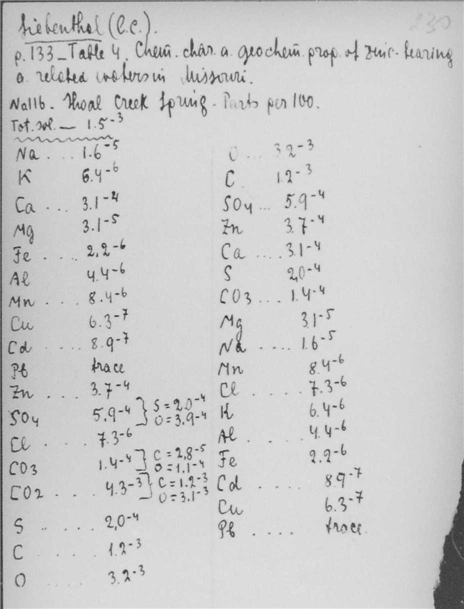 Siebenthal (l.c.).
230
p. 133 _ Table 4. Chem. char. a. geochem. prop. of zinc-bearing
a. related waters in Missouri.
Na116. Shoal Creek Spring - Parts per 100.
Tot. sol. — 1.5-3
Na ... 1.6-5
K 6.4-6
Ca ... 3.1-4
Mg 3.1-5
Fe .... 2,2-6
Al 4.4-6
Mn .... 8.4-6
Cu 6.3-7
Cd .... 8.9-7
Pb trace
Zn .... 3.7-4
SO4 5.9-4 } S = 2.0-4
O = 3.9-4
Cl .... 7.3-6
CO3 1.4-4 } C = 2,8-5
O = 1.1-4
CO2 .... 4.3-3 } C = 1.2-3
O = 3.1-3
S 2,0-4
C .... 1.2-3
O 3.2-3
O ... 3.2-3
C 1.2-3
SO4 ... 5.9-4
Zn 3.7-4
Ca .... 3.1-4
S 2,0-4
CO3 .... 1.4-4
Mg 3.1-5
Na .... 1.6-5
Mn 8.4-6
Cl .... 7.3-6
K 6.4-6
Al .... 4.4-6
Fe 2.2-6
Cd .... 8.9-7
Cu 6.3-7
Pb .... trace